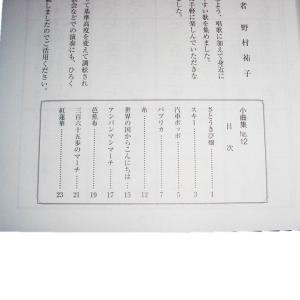 者 野村祐子
よう、唱歌に加えて身近に
すい歌を集めました。
手軽に楽しんでいただきな
した。
て基準高度を変えて調絃され
会などでの演奏にも、ひろく
しましたのでご活用ください。
小曲集 No.12
目次
さとうきび畑……1
スキー……3
汽車ポッポ……5
パプリカ……7
糸……12
世界の国からこんにちは……15
アンパンマンマーチ……17
芭蕉布……19
三百六十五歩のマーチ……21
紅蓮華……23